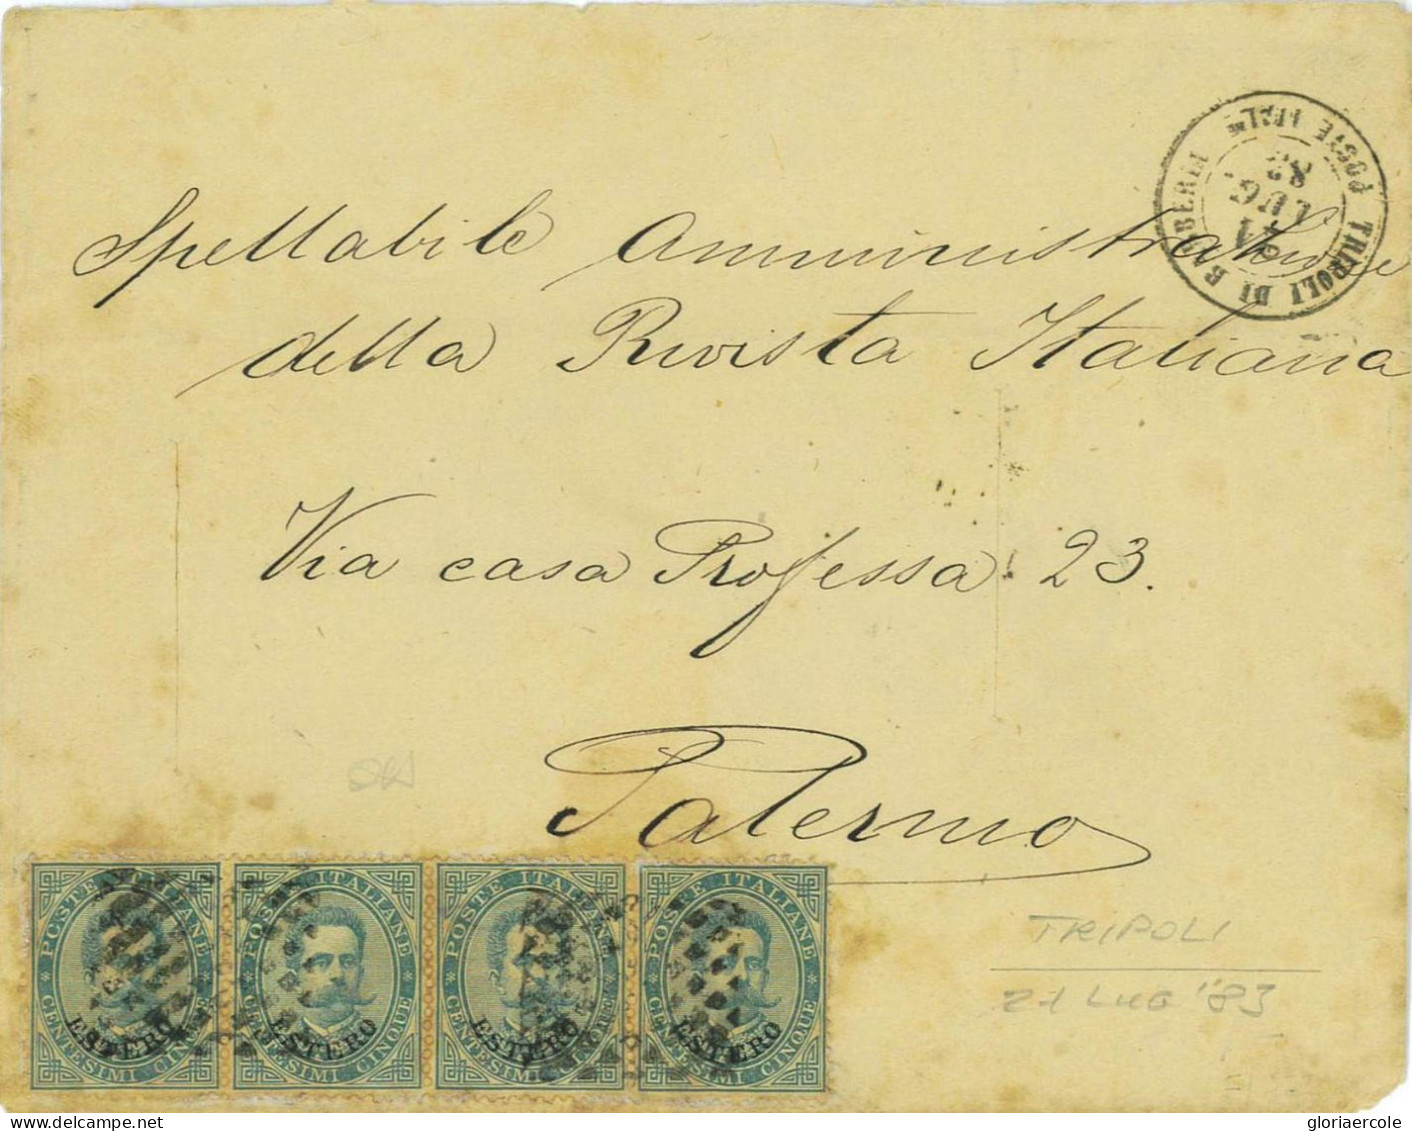 POSTE ITALne
TRIPOLI DI BARBERIA
21
LUG
83
Spettabile Amministrazione
della Rivista Italiana
Via casa Professa 23.
Palermo
POSTE ITALIANE
CENTESIMI CINQUE
ESTERO
POSTE ITALIANE
CENTESIMI CINQUE
ESTERO
POSTE ITALIANE
CENTESIMI CINQUE
ESTERO
POSTE ITALIANE
CENTESIMI CINQUE
ESTERO
TRIPOLI
21 LUG '83
gloriaercole